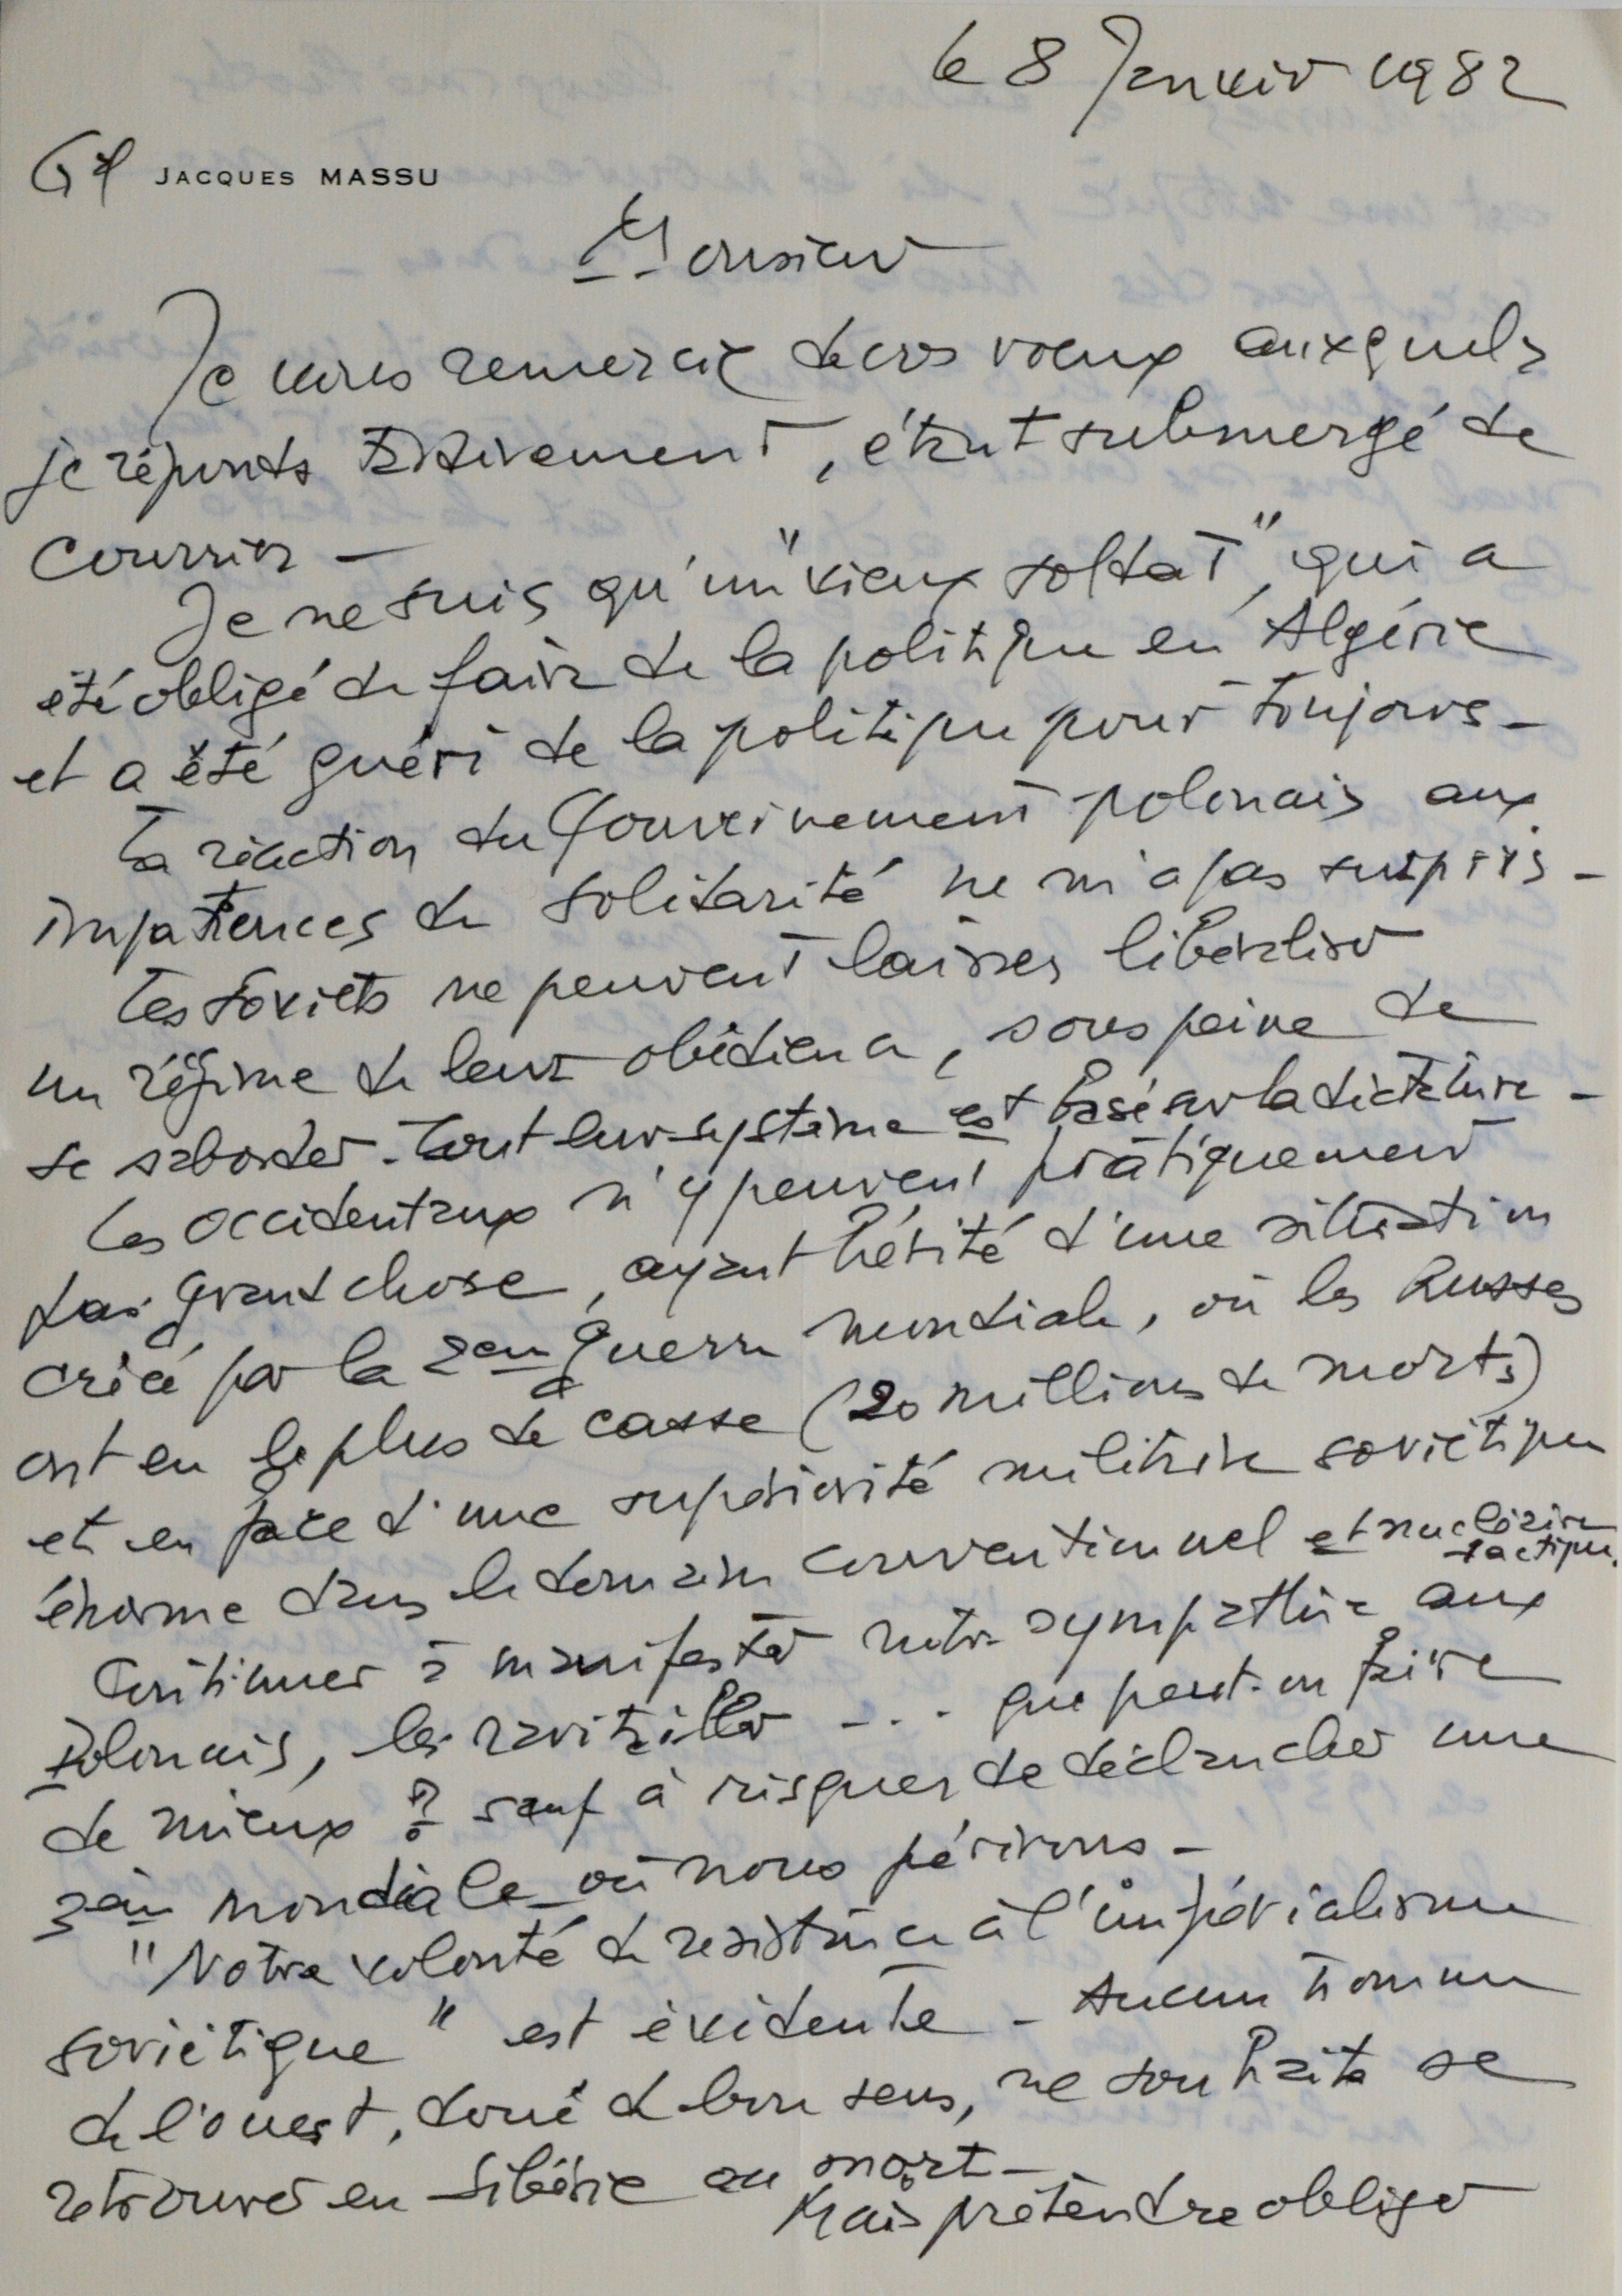 le 8 Janvier 1982
Gal JACQUES MASSU
Monsieur
Je vous remercie de vos voeux auxquels
je réponds tardivement, étant submergé de
courrier -
Je ne suis qu'un "vieux soldat", qui a
été obligé de faire de la politique en Algérie
et a été guéri de la politique pour toujours -
La réaction du Gouvernement polonais aux
impatiences de Solidarité ne m'a pas surpris -
Les Soviets ne peuvent laisser libéraliser
un régime de leur obédience, sous peine de
se saborder - Tout leur système est basé sur la dictature -
Les occidentaux n'y peuvent pratiquement
pas grand chose, ayant hérité d'une situation
créée par la 2ème guerre mondiale, où les Russes
ont eu le plus de casse (20 millions de morts)
et en face d'une supériorité militaire soviétique
énorme dans le domaine conventionnel et nucléaire
tactique.
Continuer à manifester notre sympathie aux
Polonais, les ravitailler ... que peut-on faire
de mieux ? sauf à risquer de déclancher une
3ème mondiale où nous périrons -
"Notre volonté de resistance à l'impérialisme
soviétique" est évidente - Aucun homme
de l'ouest, doué de bon sens, ne souhaite se
retrouver en Sibérie ou mort -
Mais prétendre obliger